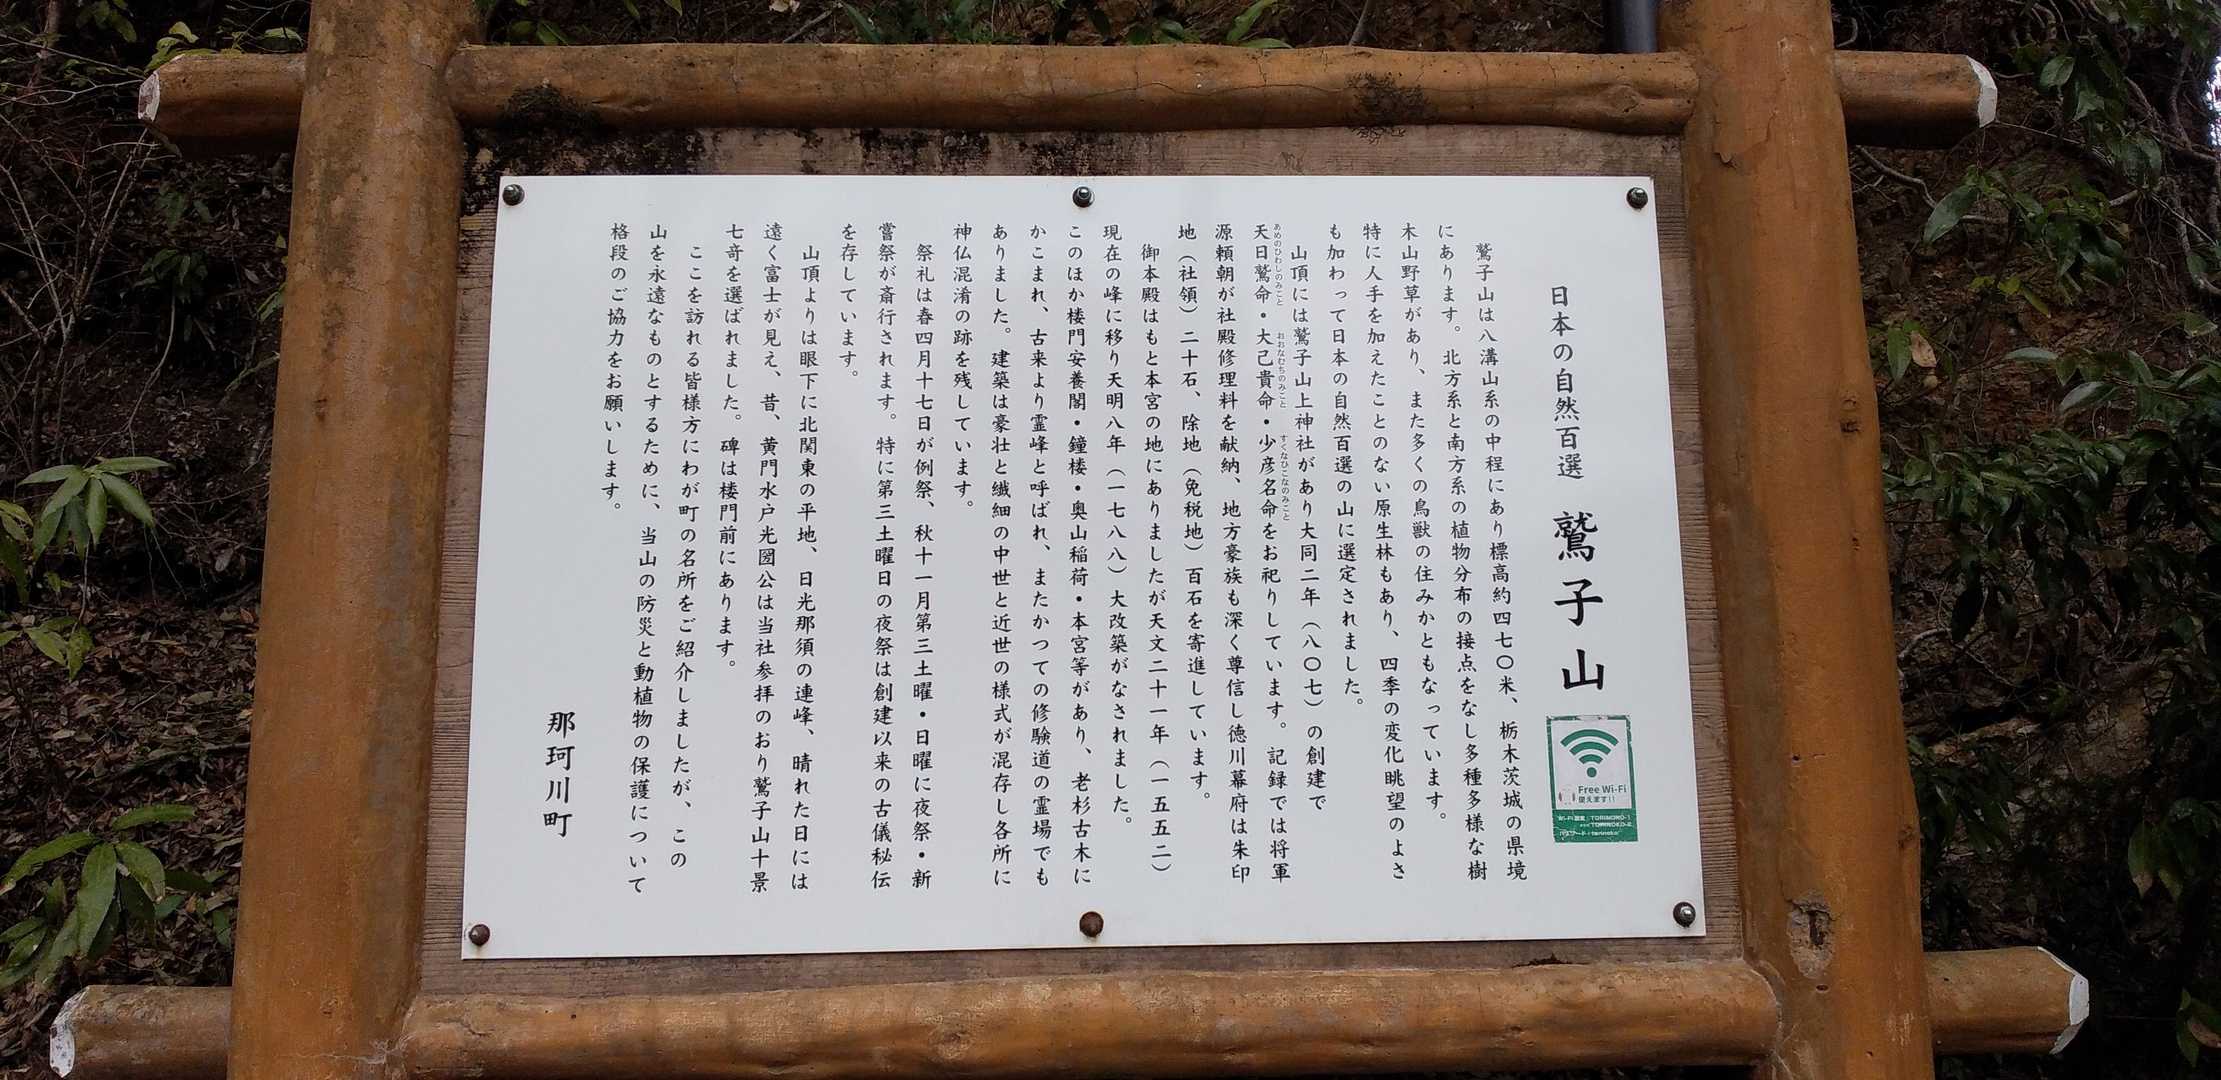 日本の自然百選 鷲子山
鷲子山は八溝山系の中程にあり標高約四七〇米、栃木茨城の県境
にあります。北方系と南方系の植物分布の接点をなし多種多様な樹
木山野草があり、また多くの鳥獣の住みかともなっています。
特に人手を加えたことのない原生林もあり、四季の変化眺望のよさ
も加わって日本の自然百選の山に選定されました。
山頂には鷲子山上神社があり大同二年（八〇七）の創建で
あめのひわしのみこと おおなむちのみこと すくなひこなのみこと
天日鷲命・大己貴命・少彦名命をお祀りしています。記録では将軍
源頼朝が社殿修理料を献納、地方豪族も深く尊信し徳川幕府は朱印
地（社領）二十石、除地（免税地）百石を寄進しています。
御本殿はもと本宮の地にありましたが天文二十一年（一五五二）
現在の峰に移り天明八年（一七八八）大改築がなされました。
このほか楼門安養閣・鐘楼・奥山稲荷・本宮等があり、老杉古木に
かこまれ、古来より霊峰と呼ばれ、またかつての修験道の霊場でも
ありました。建築は豪壮と繊細の中世と近世の様式が混存し各所に
神仏混淆の跡を残しています。
祭礼は春四月十七日が例祭、秋十一月第三土曜・日曜に夜祭・新
嘗祭が斎行されます。特に第三土曜日の夜祭は創建以来の古儀秘伝
を存しています。
山頂よりは眼下に北関東の平地、日光那須の連峰、晴れた日には
遠く富士が見え、昔、黄門水戸光圀公は当社参拝のおり鷲子山十景
七奇を選ばれました。碑は楼門前にあります。
ここを訪れる皆様方にわが町の名所をご紹介しましたが、この
山を永遠なものとするために、当山の防災と動植物の保護について
格段のご協力をお願いします。
那珂川町
Free Wi-Fi
使えます!!